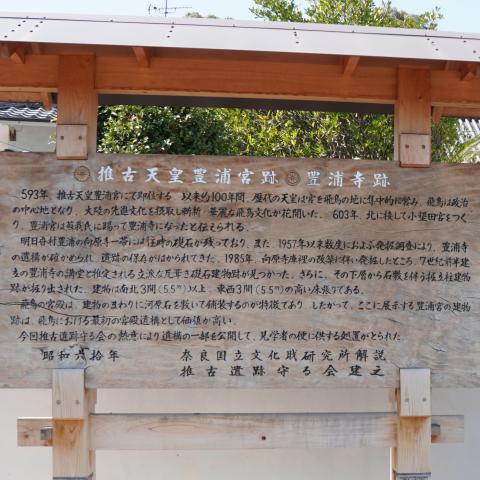 推古天皇豊浦宮跡 豊浦寺跡
593年、推古天皇豊浦宮にて即位する 以来約100年間、歴代の天皇は宮を飛鳥の地に集中的に営み、飛鳥は政治
の中心地となり、大陸の先進文化を摂取し斬新、華麗な飛鳥文化が花開いた。603年、北に接して小墾田宮をつく
り、豊浦宮は蘇我氏に賜って豊浦寺になったと伝えられる。
明日香村豊浦の向原寺一帯には往時の礎石が残っており、また、1957年以来数度におよぶ発掘調査により、豊浦寺
の遺構が確かめられ、遺跡の保存がはかられてきた。1985年、向原寺庫裡の改築に伴い発掘したところ、7世紀前半建
立の豊浦寺の講堂と推定される立派な瓦葺き礎石建物跡が見つかった。さらに、その下層から石敷を伴う掘立柱建物
跡が掘り出された。建物は南北3間(5.5m)以上、東西3間(5.5m)の高い床張りである。
飛鳥の宮殿は、建物のまわりに河原石を敷いて舗装するのが特徴であり、したがって、ここに展示する豊浦宮の建物
跡は、飛鳥における最初の宮殿遺構として価値が高い。
今回推古遺跡守る会の熱意により遺構の一部を公開して、見学者の便に供する処置がとられた。
昭和六拾年 奈良国立文化財研究所解説
推古遺跡守る会建之